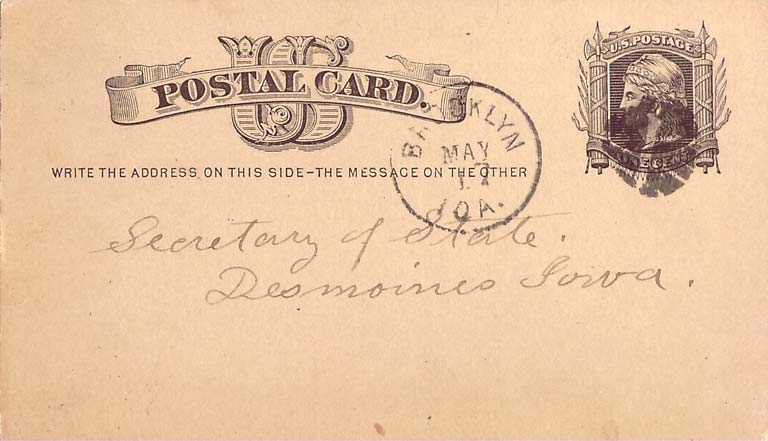 US
POSTAL CARD.
U.S. POSTAGE
ONE CENT
BROOKLYN
MAY
17
IOA.
WRITE THE ADDRESS ON THIS SIDE-THE MESSAGE ON THE OTHER
Secretary of State.
Desmoines Iowa.